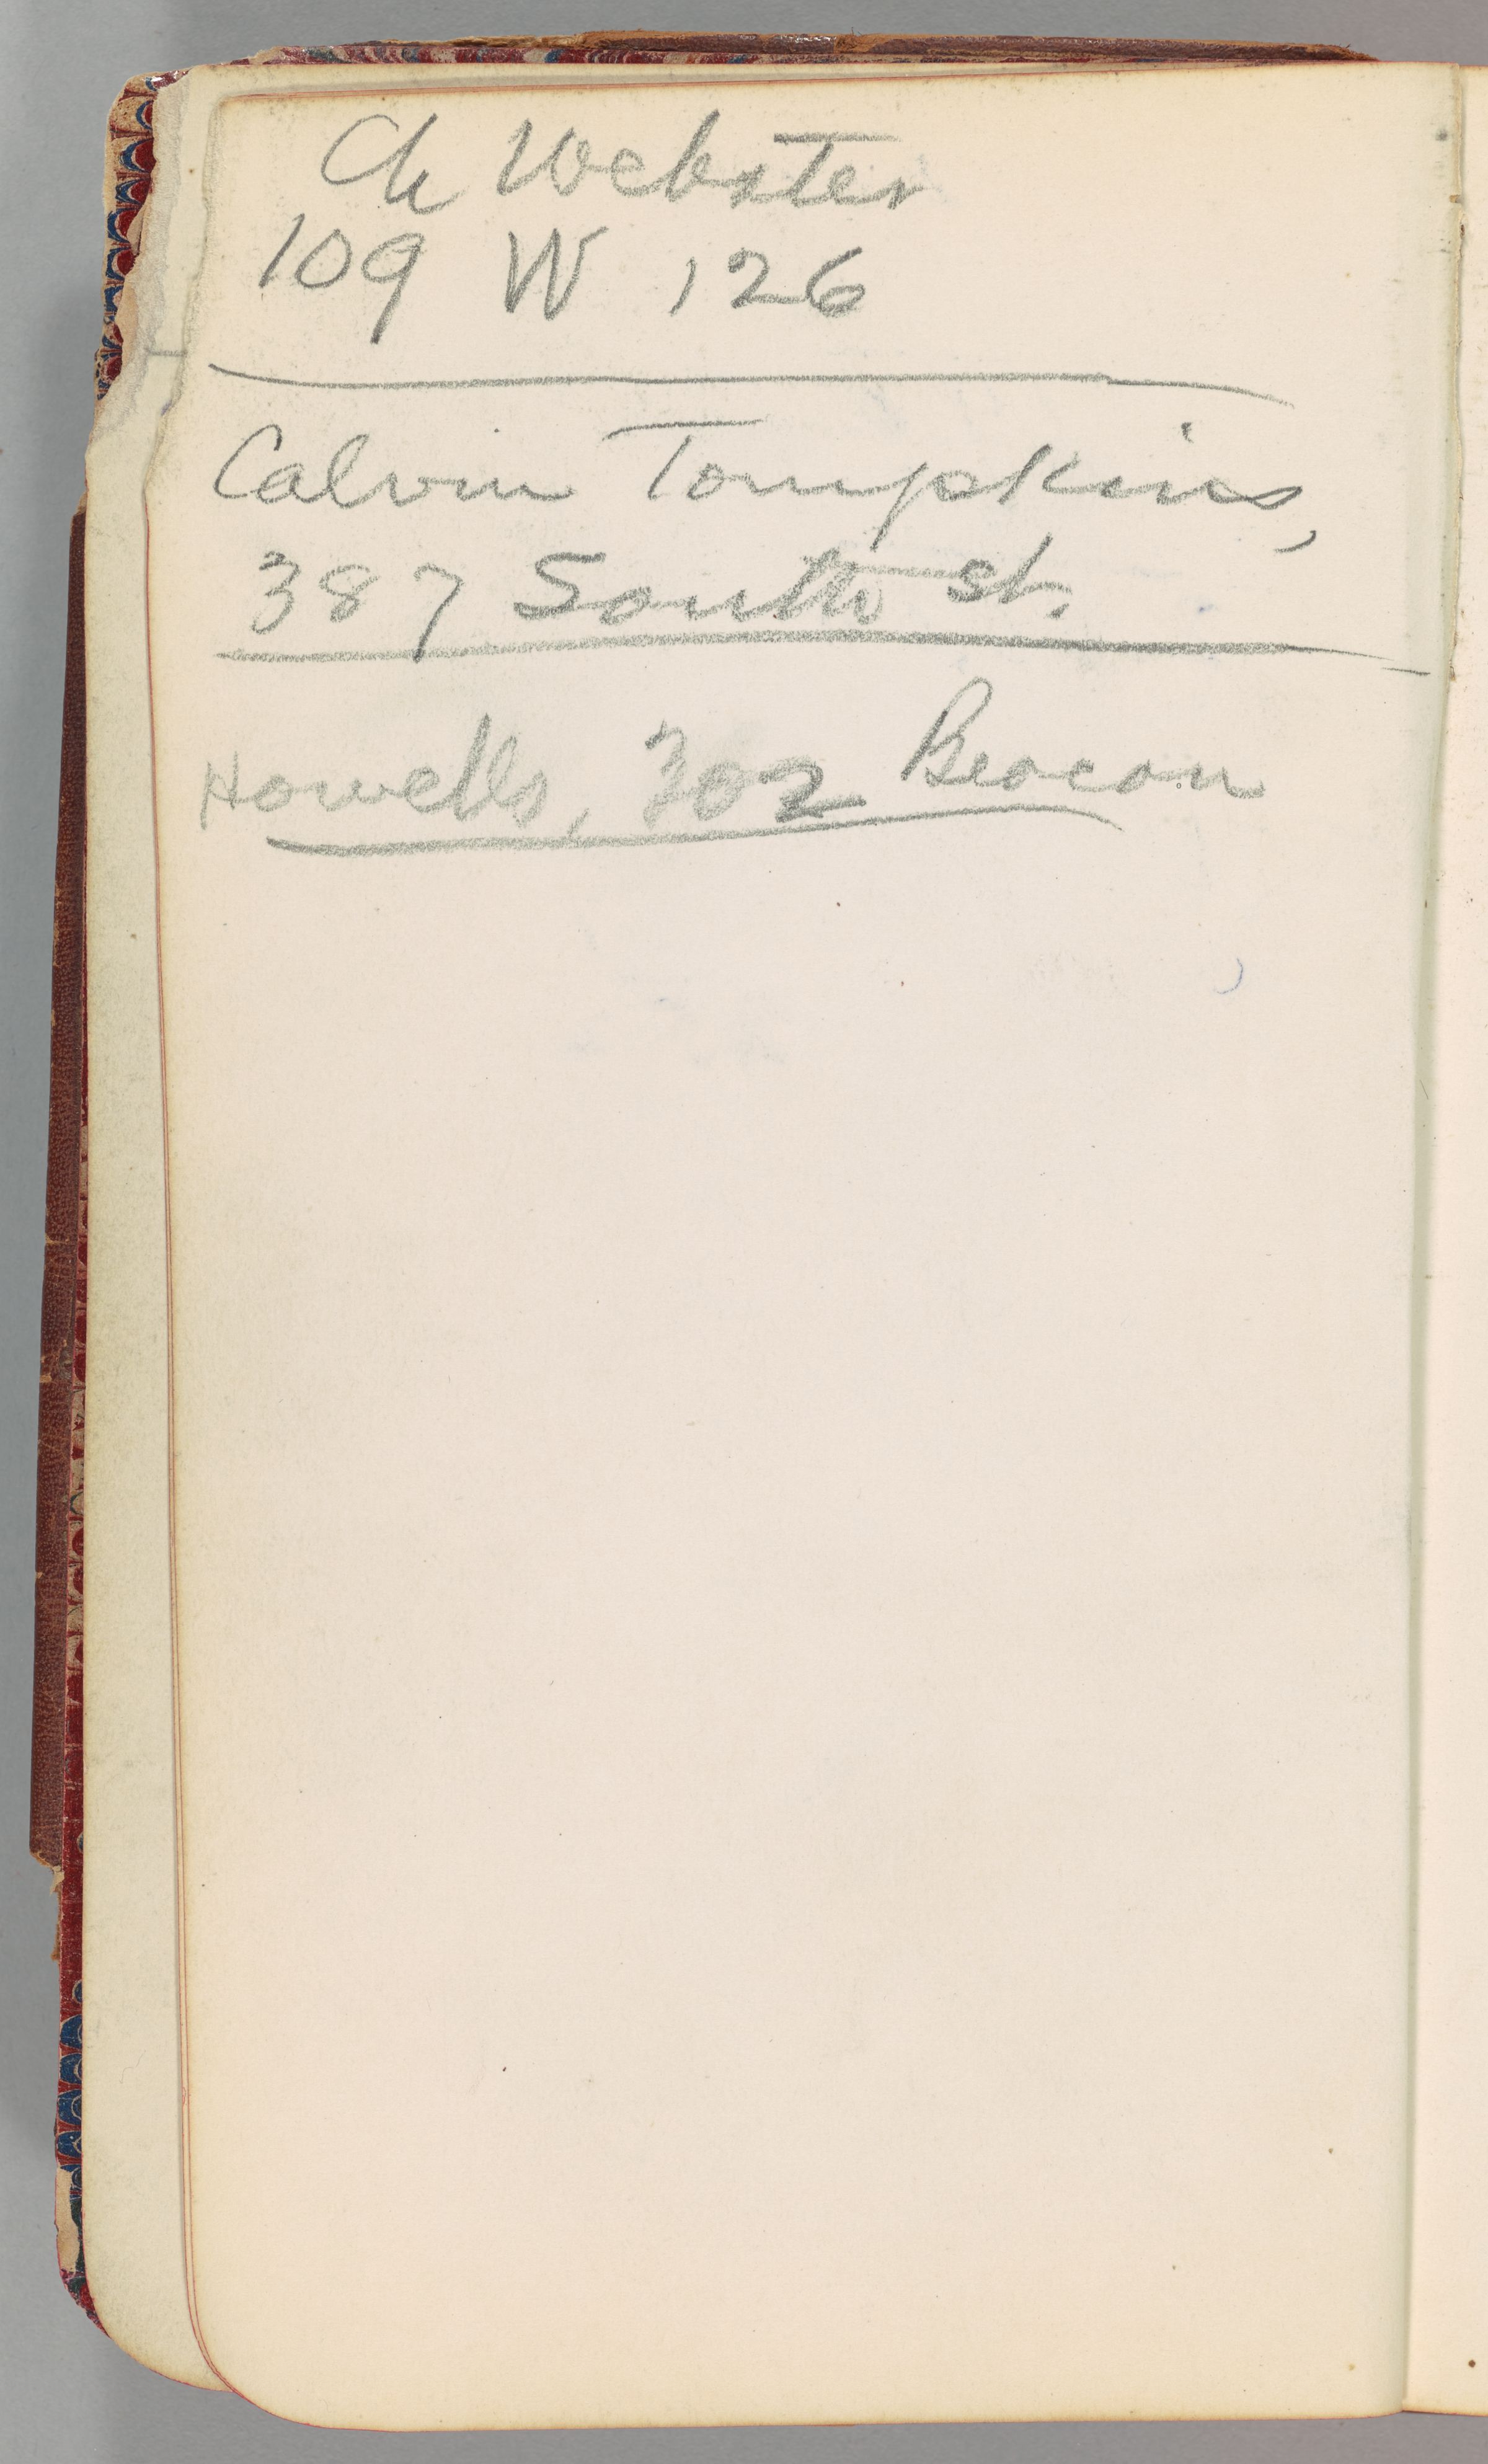 Ch Webster
109 W 126
Calvin Tompkins,
387 South st.
Howells, 302 Beacon